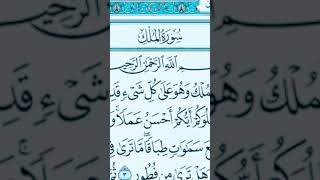 سُورَةُ الْمُلْكِ
ـمِ اللَّهِ الرَّحْمَٰنِ الرَّحِيمِ
ـمُلْكُ وَهُوَ عَلَىٰ كُلِّ شَىْءٍ قَدِ
ـلُوَكُمْ أَيُّكُمْ أَحْسَنُ عَمَلًا وَ
ـعَ سَمَٰوَٰتٍ طِبَاقًا مَّا تَرَىٰ فِى
هَلْ تَرَىٰ مِن فُطُورٍ ٣ ثُـ